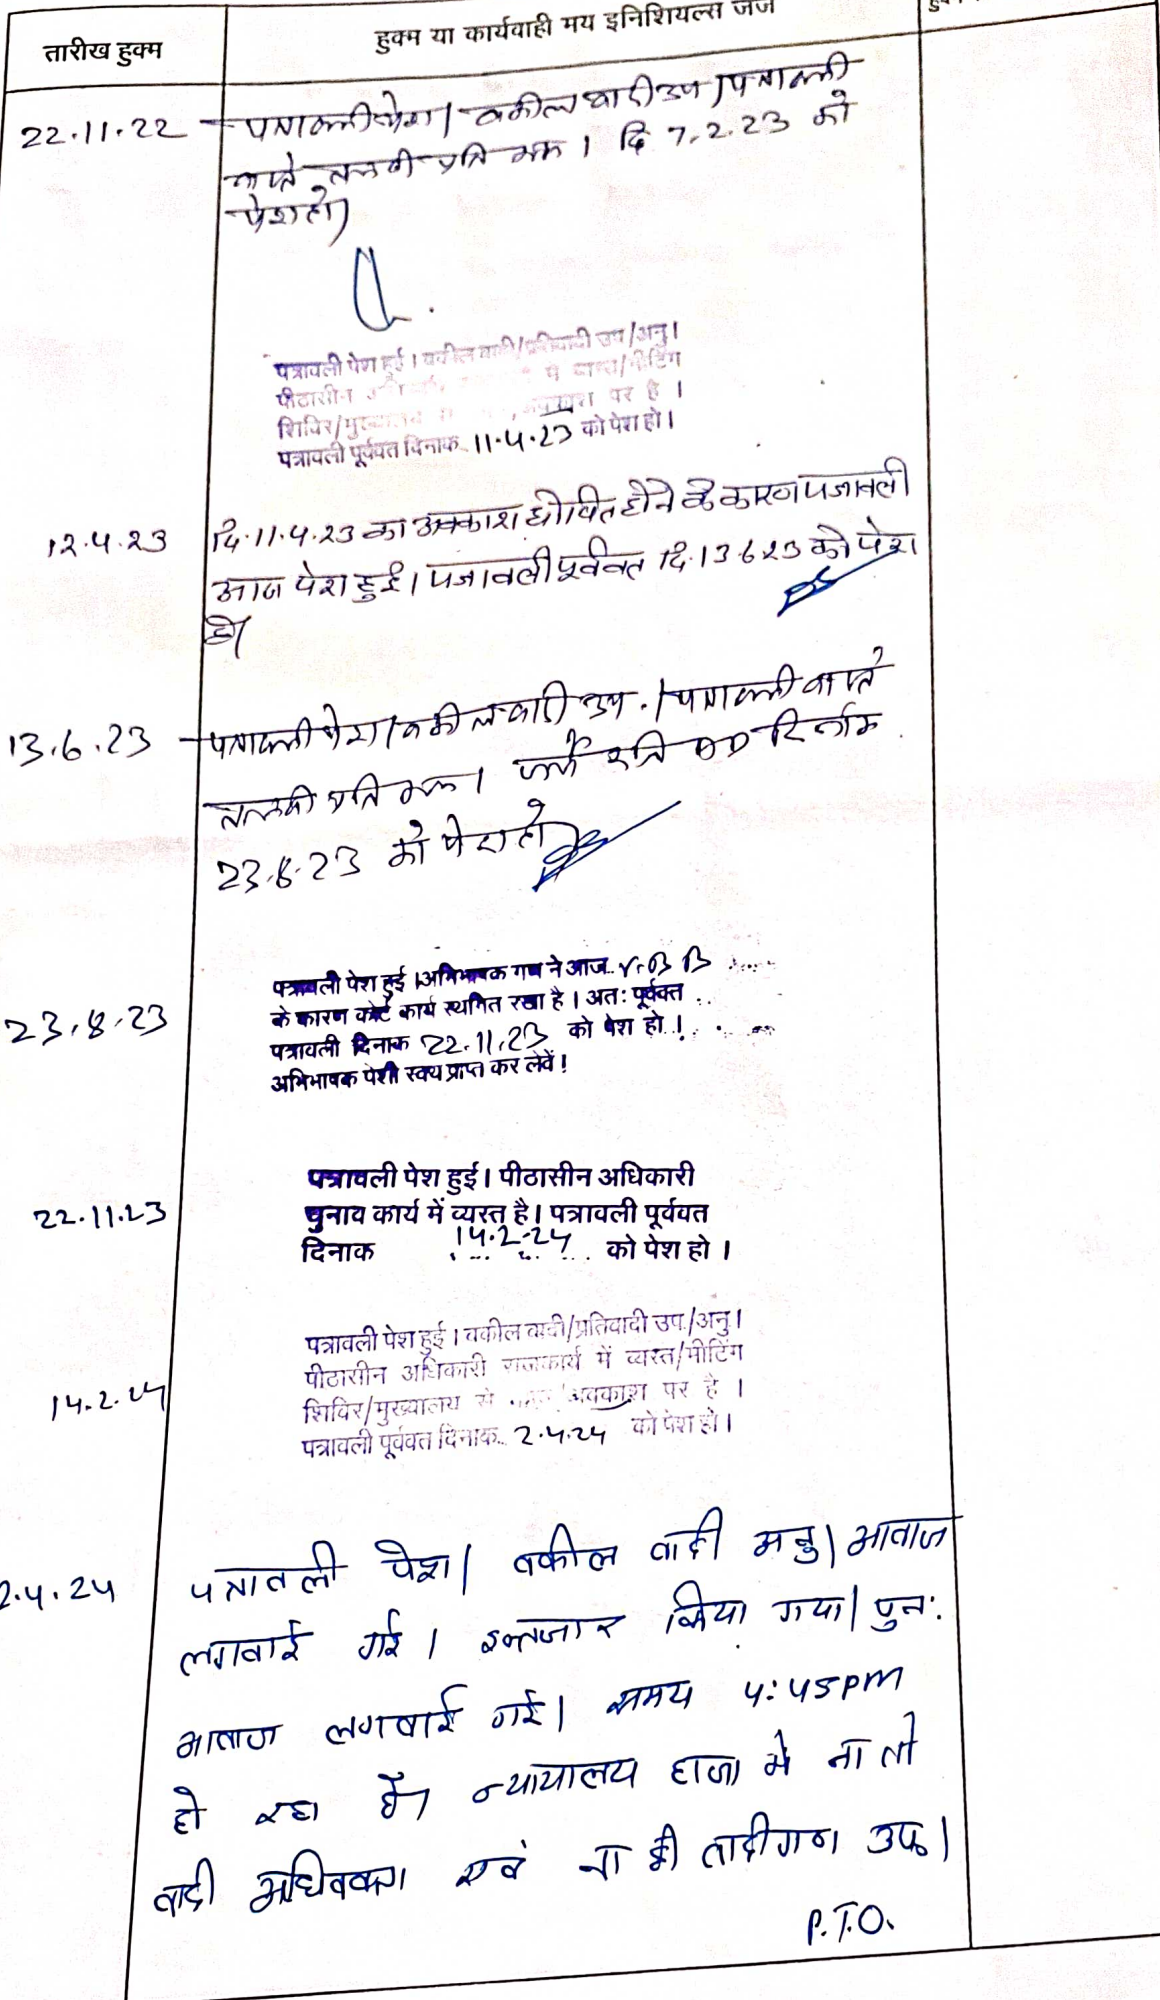 तारीख हुक्म
हुक्म या कार्यवाही मय इनिशियल्स जज
22.11.22 पत्रावली पेश। वकील वादी उप। पत्रावली
वास्ते तलबी प्रति मक। दि 7.2.23 को
पेश हो।
पत्रावली पेश हुई। वकील वादी/प्रतिवादी उप/अनु।
पीठासीन में व्यस्त/मीटिंग
शिविर/मुख्यालय से अवकाश पर है ।
पत्रावली पूर्ववत दिनाक 11.4.23 को पेश हो।
12.4.23 दि.11.4.23 का अवकाश घोषित होने के कारण पत्रावली
आज पेश हुई। पत्रावली पूर्ववत दि.13.6.23 को पेश
हो
13.6.23 पत्रावली पेश। वकील वादी उप.। पत्रावली वास्ते
तलबी प्रति मक।
23.8.23 को पेश हो
23.8.23 पत्रावली पेश हुई ।अभिभाषक गण ने आज
के कारण कोर्ट कार्य स्थगित रखा है । अतः पूर्ववत
पत्रावली दिनाक 22.11.23 को पेश हो !
अभिभाषक पेशी स्वय प्राप्त कर लेवें !
22.11.23 पत्रावली पेश हुई। पीठासीन अधिकारी
चुनाव कार्य में व्यस्त है। पत्रावली पूर्ववत
दिनाक 14.2.24 को पेश हो ।
14.2.24 पत्रावली पेश हुई । वकील वादी/प्रतिवादी उप./अनु।
पीठासीन अधिकारी राजकार्य में व्यस्त/मीटिंग
शिविर/मुख्यालय से अवकाश पर है ।
पत्रावली पूर्ववत दिनाक 2.4.24 को पेश हो।
2.4.24 पत्रावली पेश। वकील वादी अनु। आवाज
लगवाई गई। इन्तजार किया गया। पुन:
आवाज लगवाई गई। समय 4:45PM
हो रहा है। न्यायालय हाजा मे ना तो
वादी अधिवक्ता एवं ना ही वादीगण उप।
P.T.O.